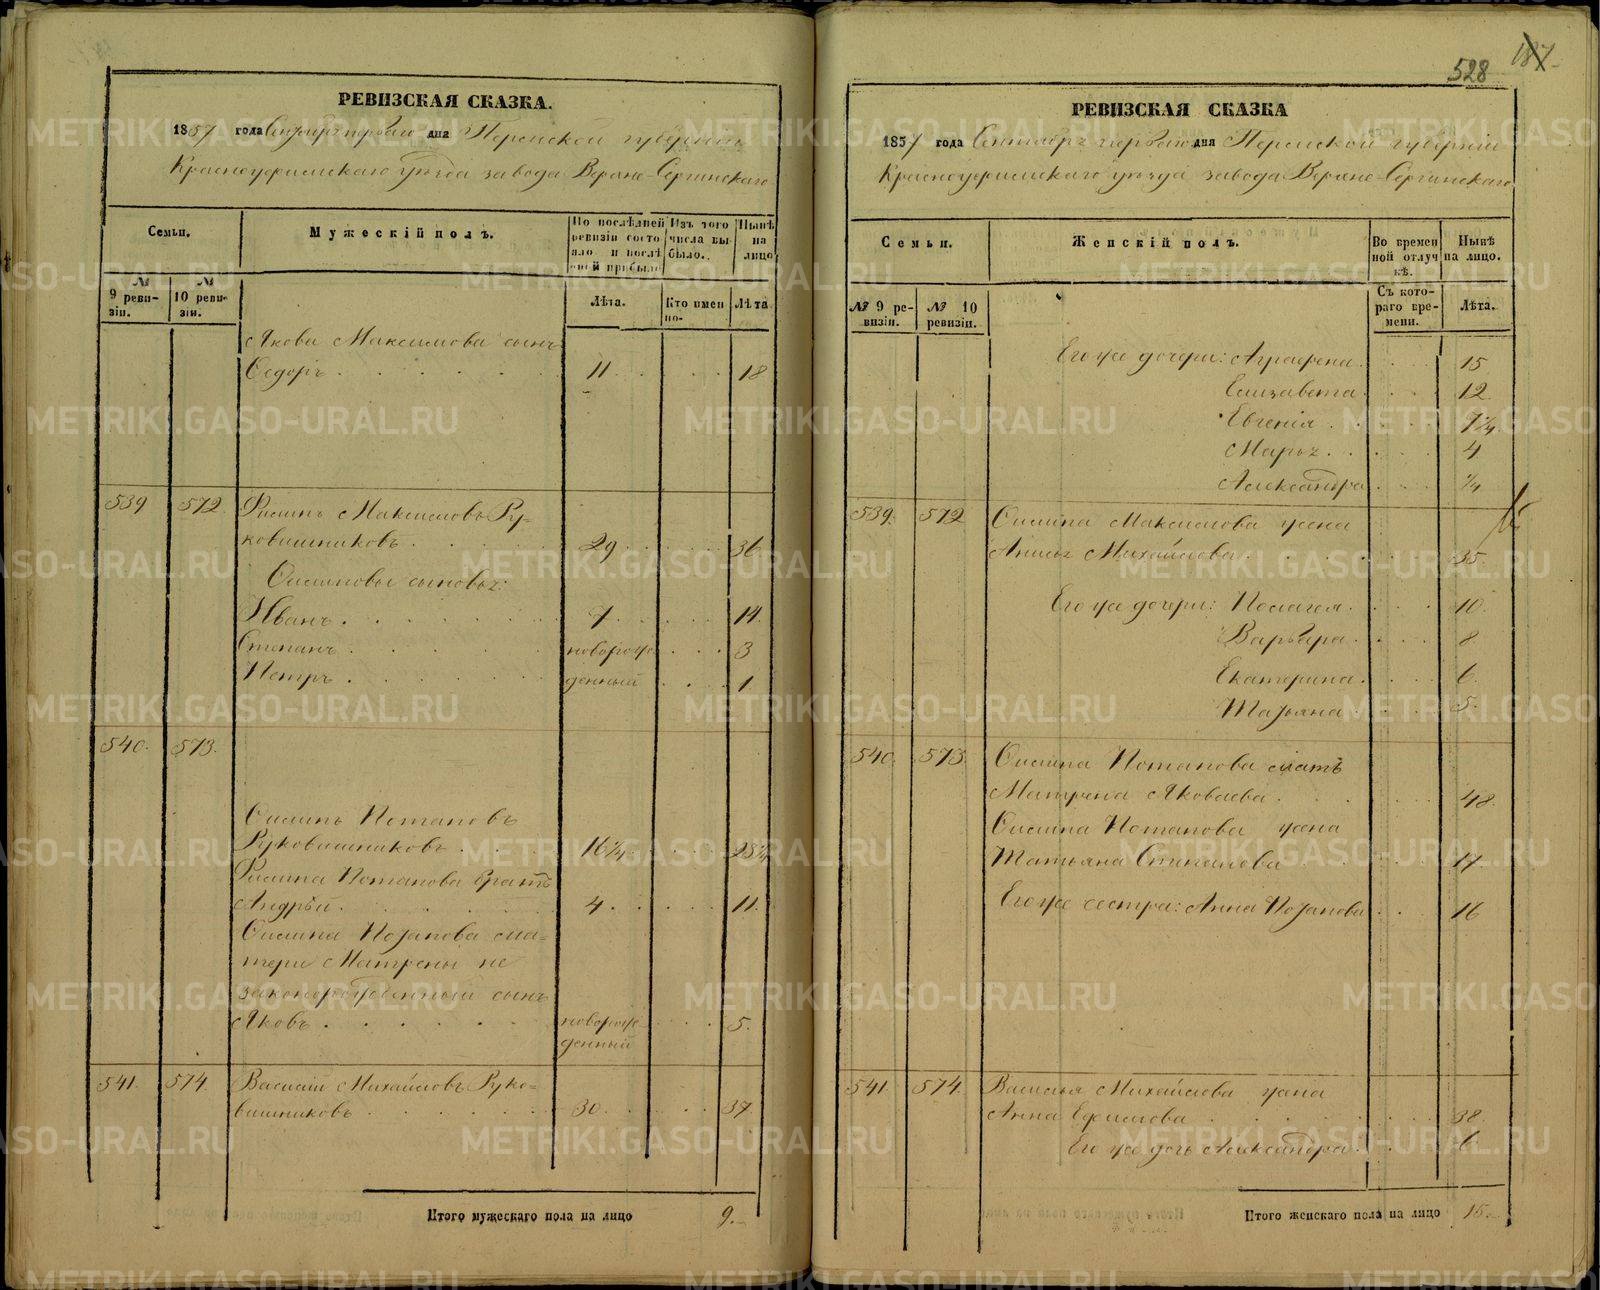 РЕВИЗСКАЯ СКАЗКА.
1857 года Сентября первого дня Пермской губернiи
Красноуфимскаго уѣзда завода Верхне-Сергинскаго
Семьи.
Мужескiй полъ.
По послѣдней ревизiи состояло и послѣ оной прибыло
Изъ того числа выбыло.
Нынѣ на лицо
№ 9 ревизiи.
№ 10 ревизiи.
Лѣта.
Кто именно.
Лѣта
Якова Максимова сынъ
Ѳедоръ 11 18
539 572 Филипъ Максимовъ Ру-
ковишниковъ 29 36
сыновья:
Иванъ 7 14
Степанъ новорож 3
Петръ денный 1
540. 573.
Потаповъ
Руковишниковъ 16¼ 23¼
Потапова братъ
Андрѣй 4 11.
Потапова ма-
тери Матрены не
законорожденный сынъ
Яковъ новорож 5.
денный
541. 574. Василiй Михайловъ Руко-
вишниковъ 30 37
Итого мужескаго пола на лицо 9.
528 187
РЕВИЗСКАЯ СКАЗКА
1857 года Сентября первого дня Пермской губернiи
Красноуфимскаго уѣзда завода Верхне-Сергинскаго
Семьи.
Женскiй полъ.
Во временной отлучкѣ.
Нынѣ на лицо.
№ 9 ревизiи.
№ 10 ревизiи.
Съ котораго времени.
Лѣта.
Его же дочери: Аграфена 15
Елизавета 12
Евгенiя 7¼
Марья 4
Александра ¼
539. 572 Максимова жена
Анисья Михайлова 35
Его же дочери: Пелагея 10
Варвара 8
Екатерина 6
Татьяна 5.
540. 573 Потапова мать
Матрена Яковлева 48
Потапова жена
Татьяна Степанова 17
Его же сестра: Анна Потапова 16
541. 574. Василья Михайлова жена
Анна Ефимова 38
Его же дочь Александра 6
Итого женскаго пола на лицо 15.
METRIKI.GASO-URAL.RU